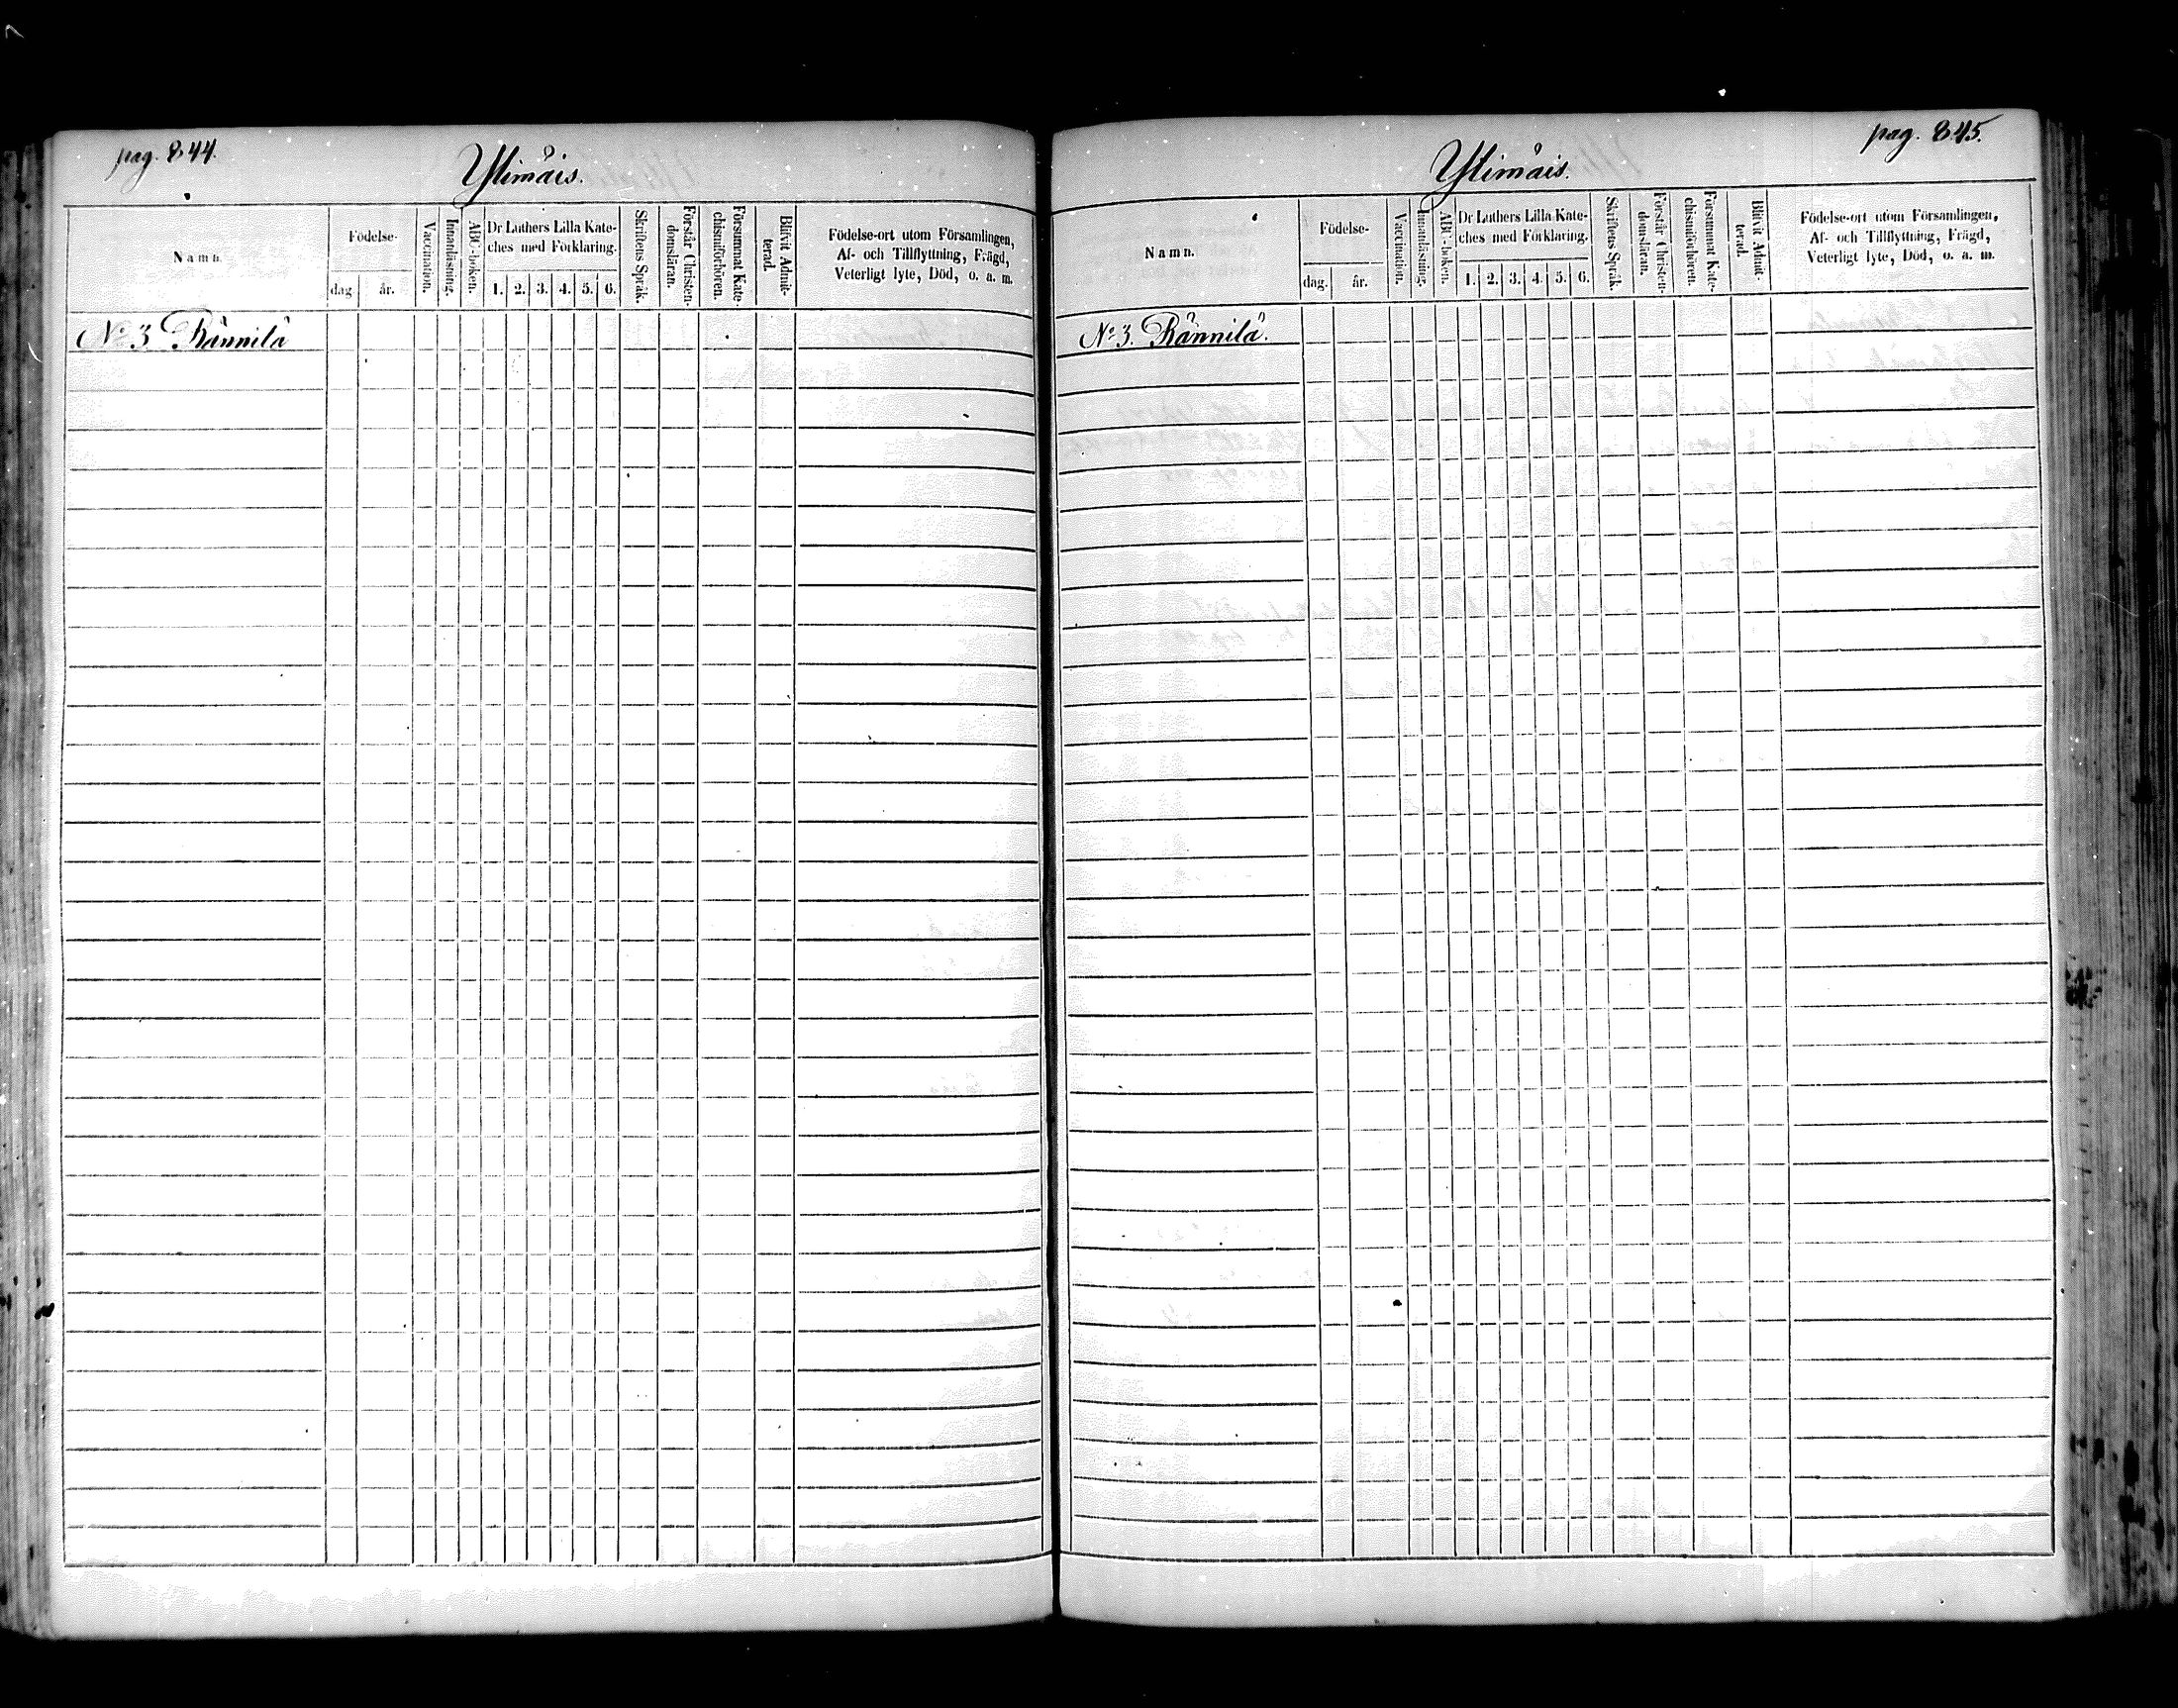 pag. 844.
Ylimäis.
Namn.
Födelse-
dag
år.
Vaccination.
Innanläsning.
ABC-boken.
Dr Luthers Lilla Kate-
ches med Förklaring.
1. 2. 3. 4. 5. 6.
Skriftens Språk.
Förstår Christen-
domsläran.
Försummat Kate-
chismiförhören.
Blifvit Admit-
terad.
Födelse-ort utom Församlingen,
Af- och Tillflyttning, Frägd,
Veterligt lyte, Död, o. a. m.
No 3 Rännilä
pag. 845.
Ylimäis.
Namn.
Födelse-
dag.
år.
Vaccination.
Innanläsning.
ABC-boken.
Dr Luthers Lilla Kate-
ches med Förklaring.
1. 2. 3. 4. 5. 6.
Skriftens Språk.
Förstår Christen-
domsläran.
Försummat Kate-
chismiförhören.
Blifvit Admit-
terad.
Födelse-ort utom Församlingen,
Af- och Tillflyttning, Frägd,
Veterligt lyte, Död, o. a. m.
No 3. Rännilä.